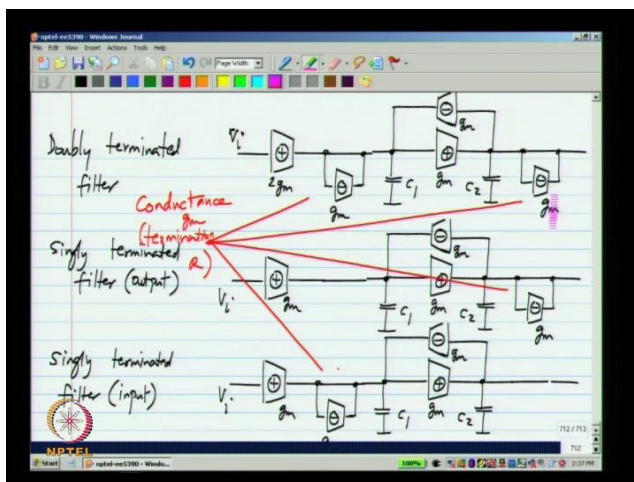 nptel-ee5390 - Windows Journal
File Edit View Insert Actions Tools Help
Page Width
B I
Doubly terminated
filter
Vi
2gm
gm
C1
gm
gm
C2
gm
Conductance
gm
(termination
R)
Singly terminated
filter (output)
Vi
gm
C1
gm
gm
C2
gm
Singly terminated
filter (input)
Vi
gm
C1
gm
gm
C2
NPTEL
712 / 713
712
Start
nptel-ee5390 - Windo...
100%
2:37 PM